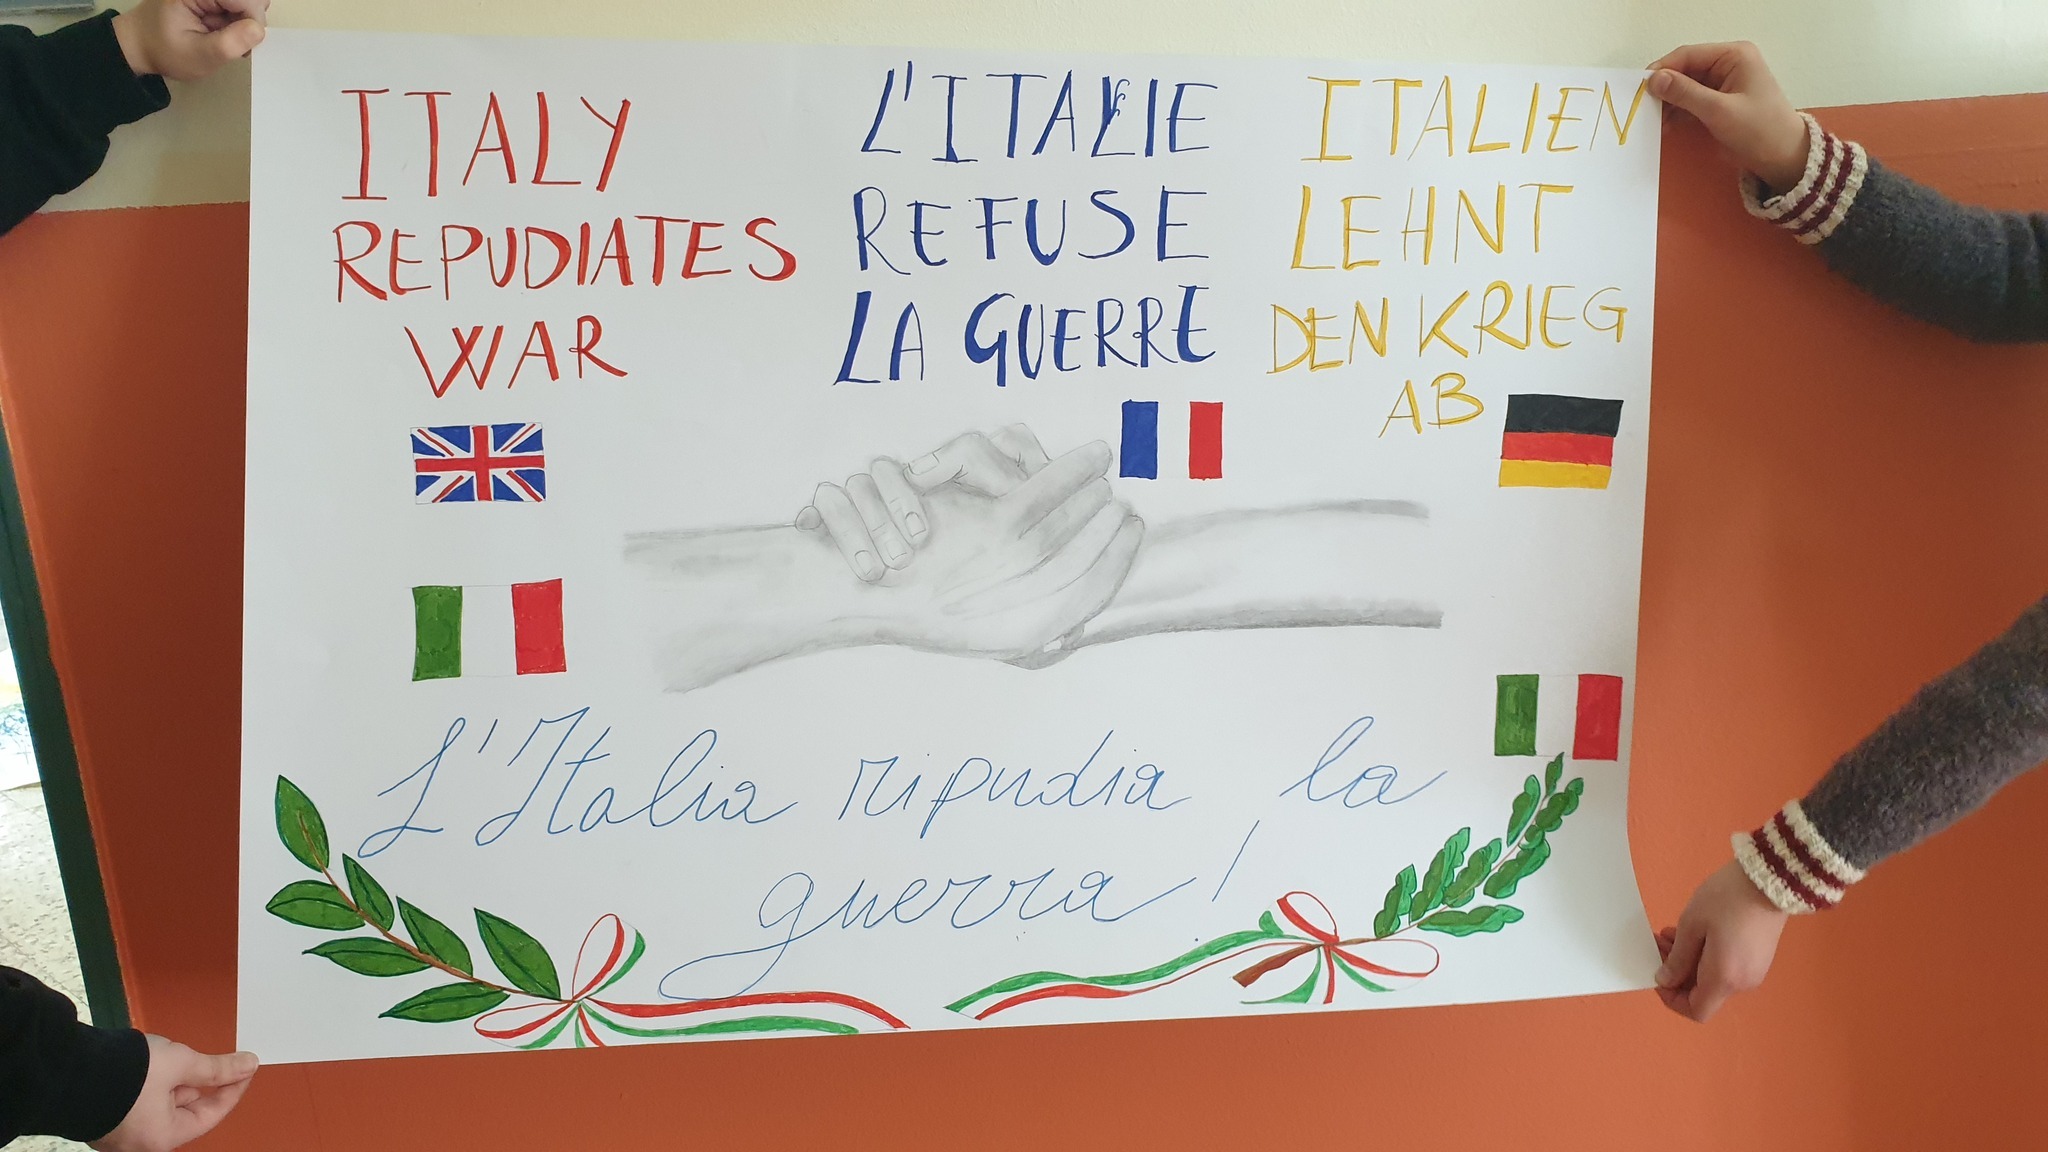 ITALY
REPUDIATES
WAR
L'ITALIE
REFUSE
LA GUERRE
ITALIEN
LEHNT
DEN KRIEG
AB
L'Italia ripudia la
guerra!